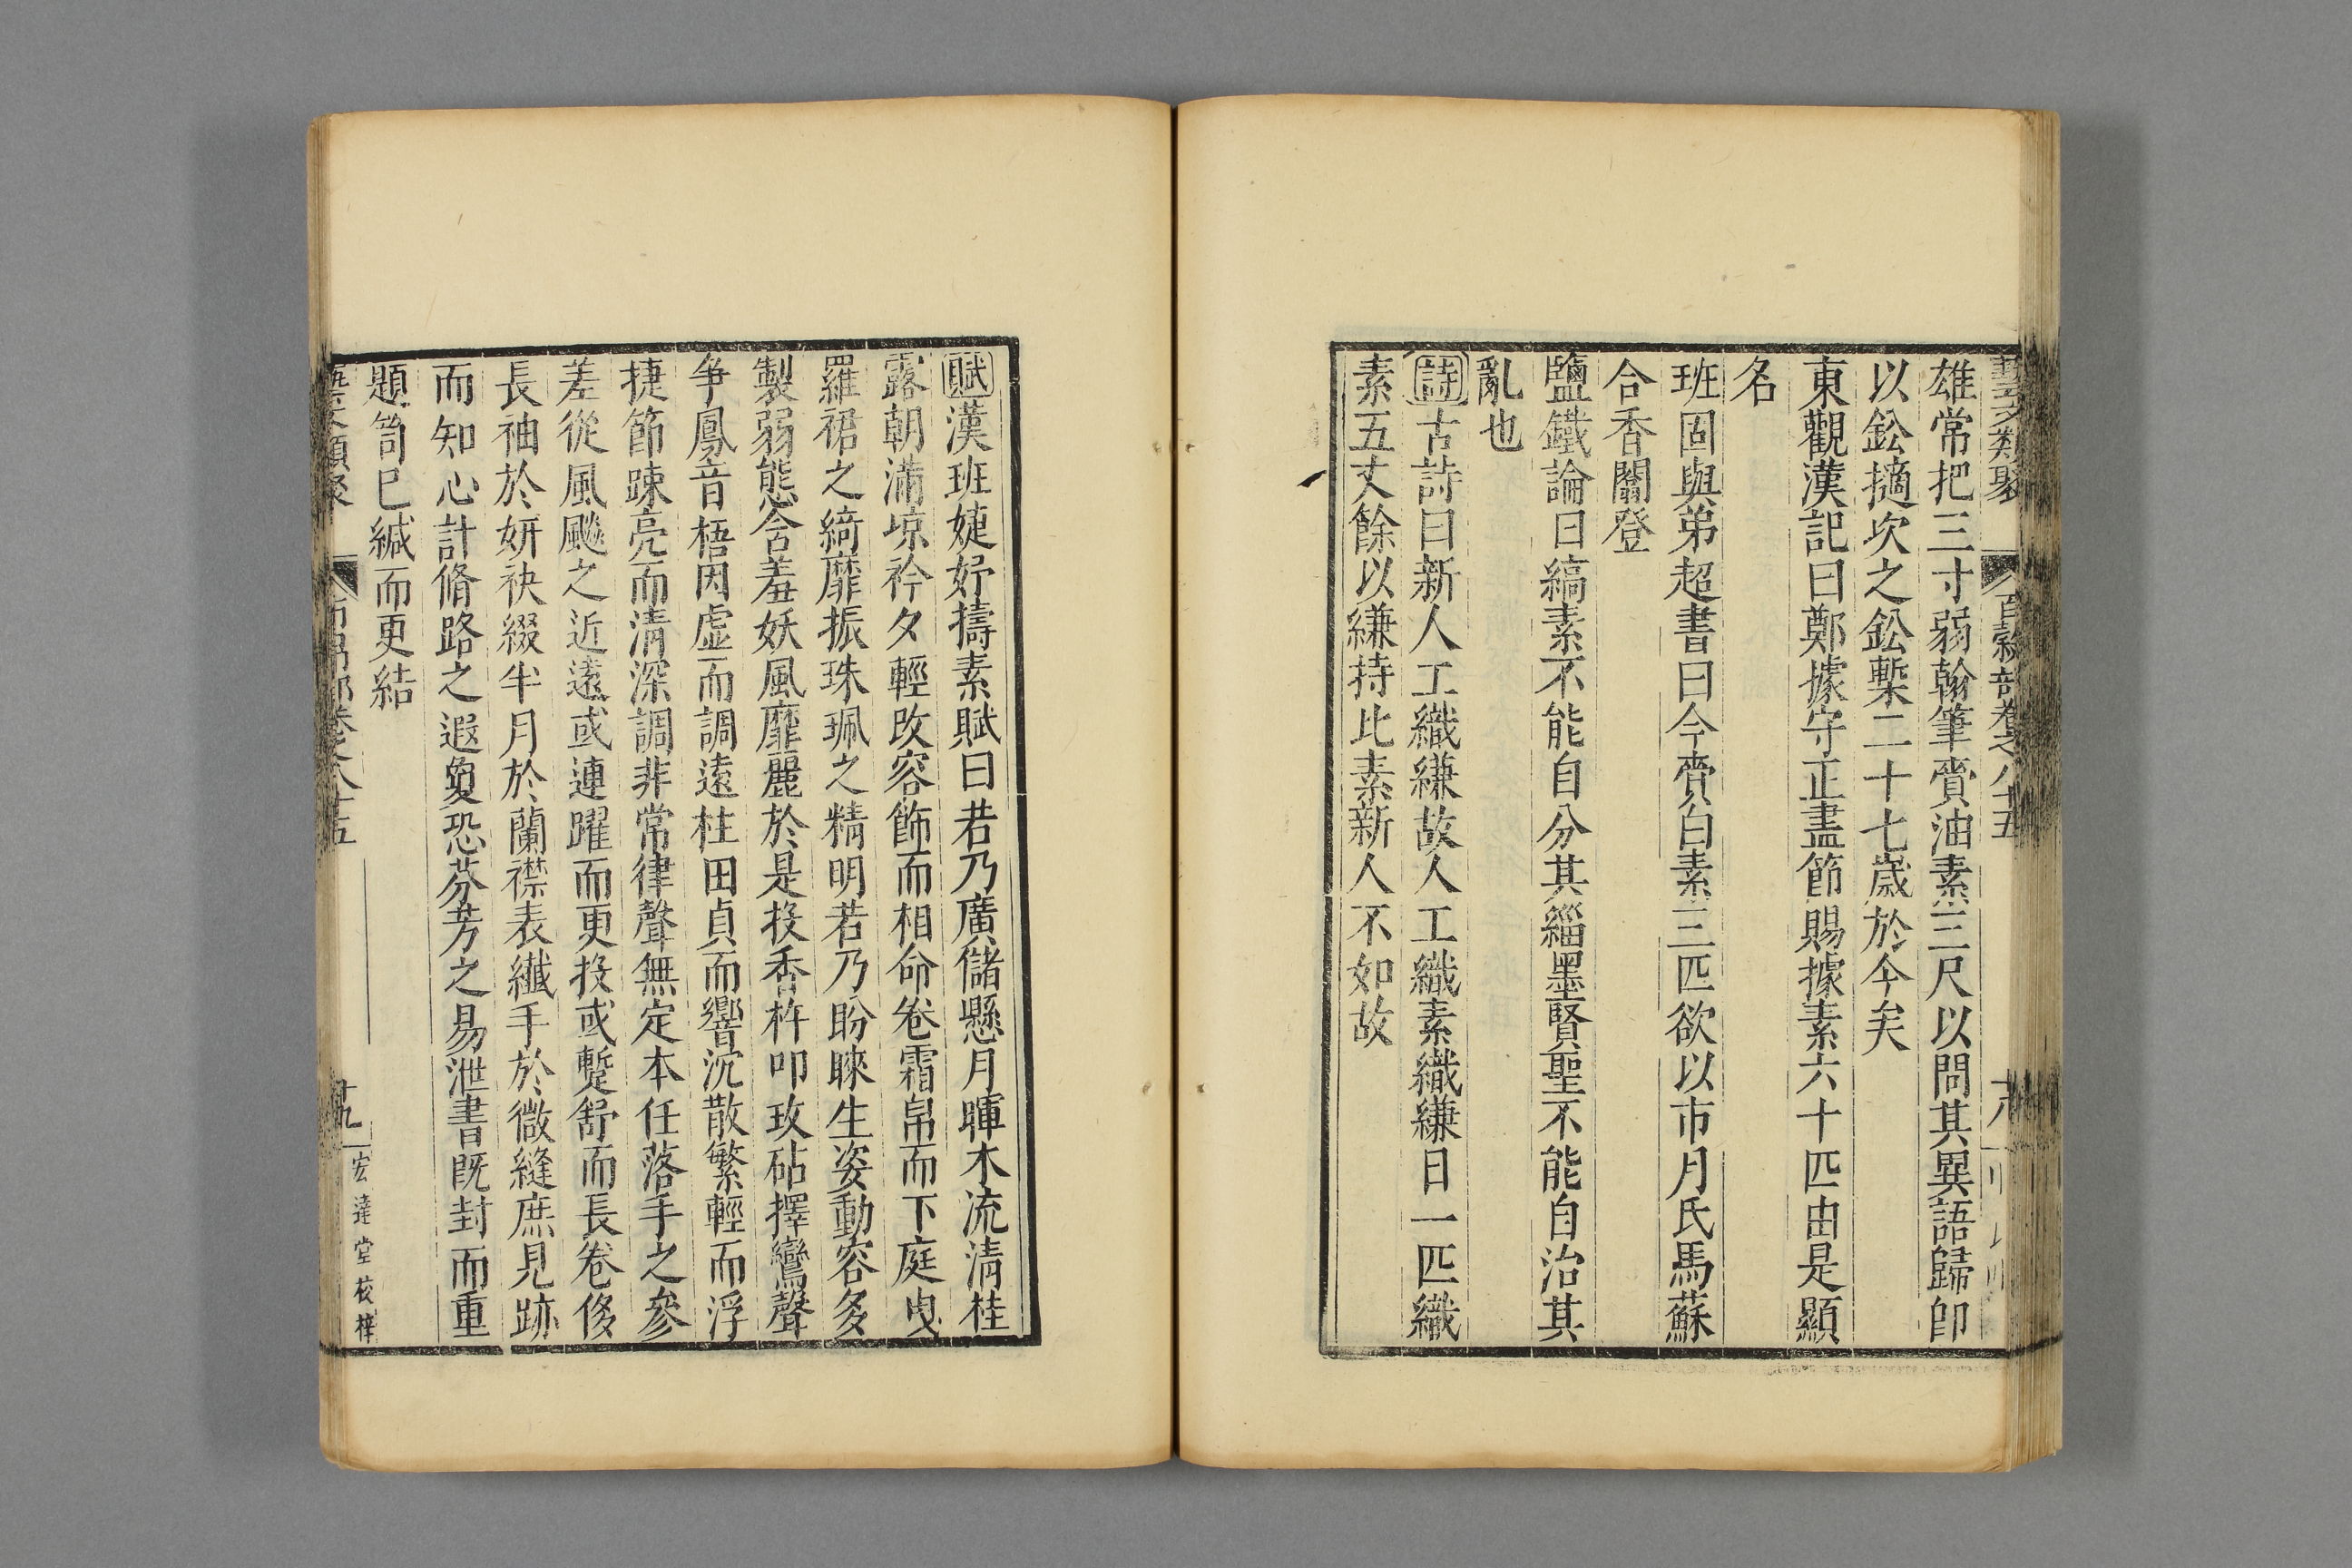 藝文類聚 百穀部卷之八十五 十八
雄常把三寸弱翰筆賫油素三尺以問其異語歸即
以鈆擿次之鈆槧二十七歲於今矣
東觀漢記曰鄭據守正盡節賜據素六十匹由是顯
名
班固與弟超書曰今賫白素三匹欲以市月氏馬蘇
合香闟登
鹽鐵論曰縞素不能自分其緇墨賢聖不能自治其
亂也
詩古詩曰新人工織縑故人工織素織縑日一匹織
素五丈餘以縑持比素新人不如故
賦漢班婕妤擣素賦曰若乃廣儲懸月暉木流清桂
露朝滿涼衿夕輕改容飾而相命卷霜帛而下庭曳
羅裙之綺靡振珠珮之精明若乃盼睞生姿動容多
製弱態含羞妖風靡麗於是投香杵叩玫砧擇鸞聲
争鳳音梧因虛而調遠柱田貞而響沈散繁輕而浮
捷節踈亮而清深調非常律聲無定本任落手之參
差從風飈之近遠或連躍而更投或蹔舒而長卷侈
長袖於妍袂綴半月於蘭襟表纖手於微縫庶見跡
而知心計脩路之遐敻恐芬芳之易泄書既封而重
題笥巳緘而更結
藝文類聚 布帛部卷之八十五 十九 宏達堂校梓